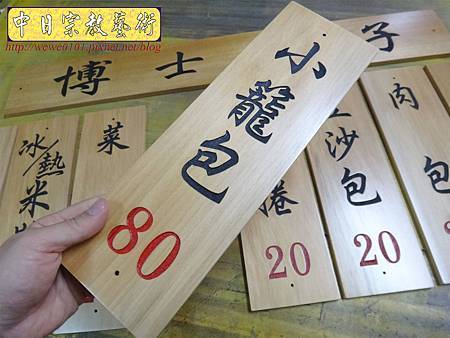 中日宗教藝術
http://wewe0101.pixnet.net/blog
博士 子
小籠包
80
冰/熱米
菜
捲
20
沙包
20
肉
包